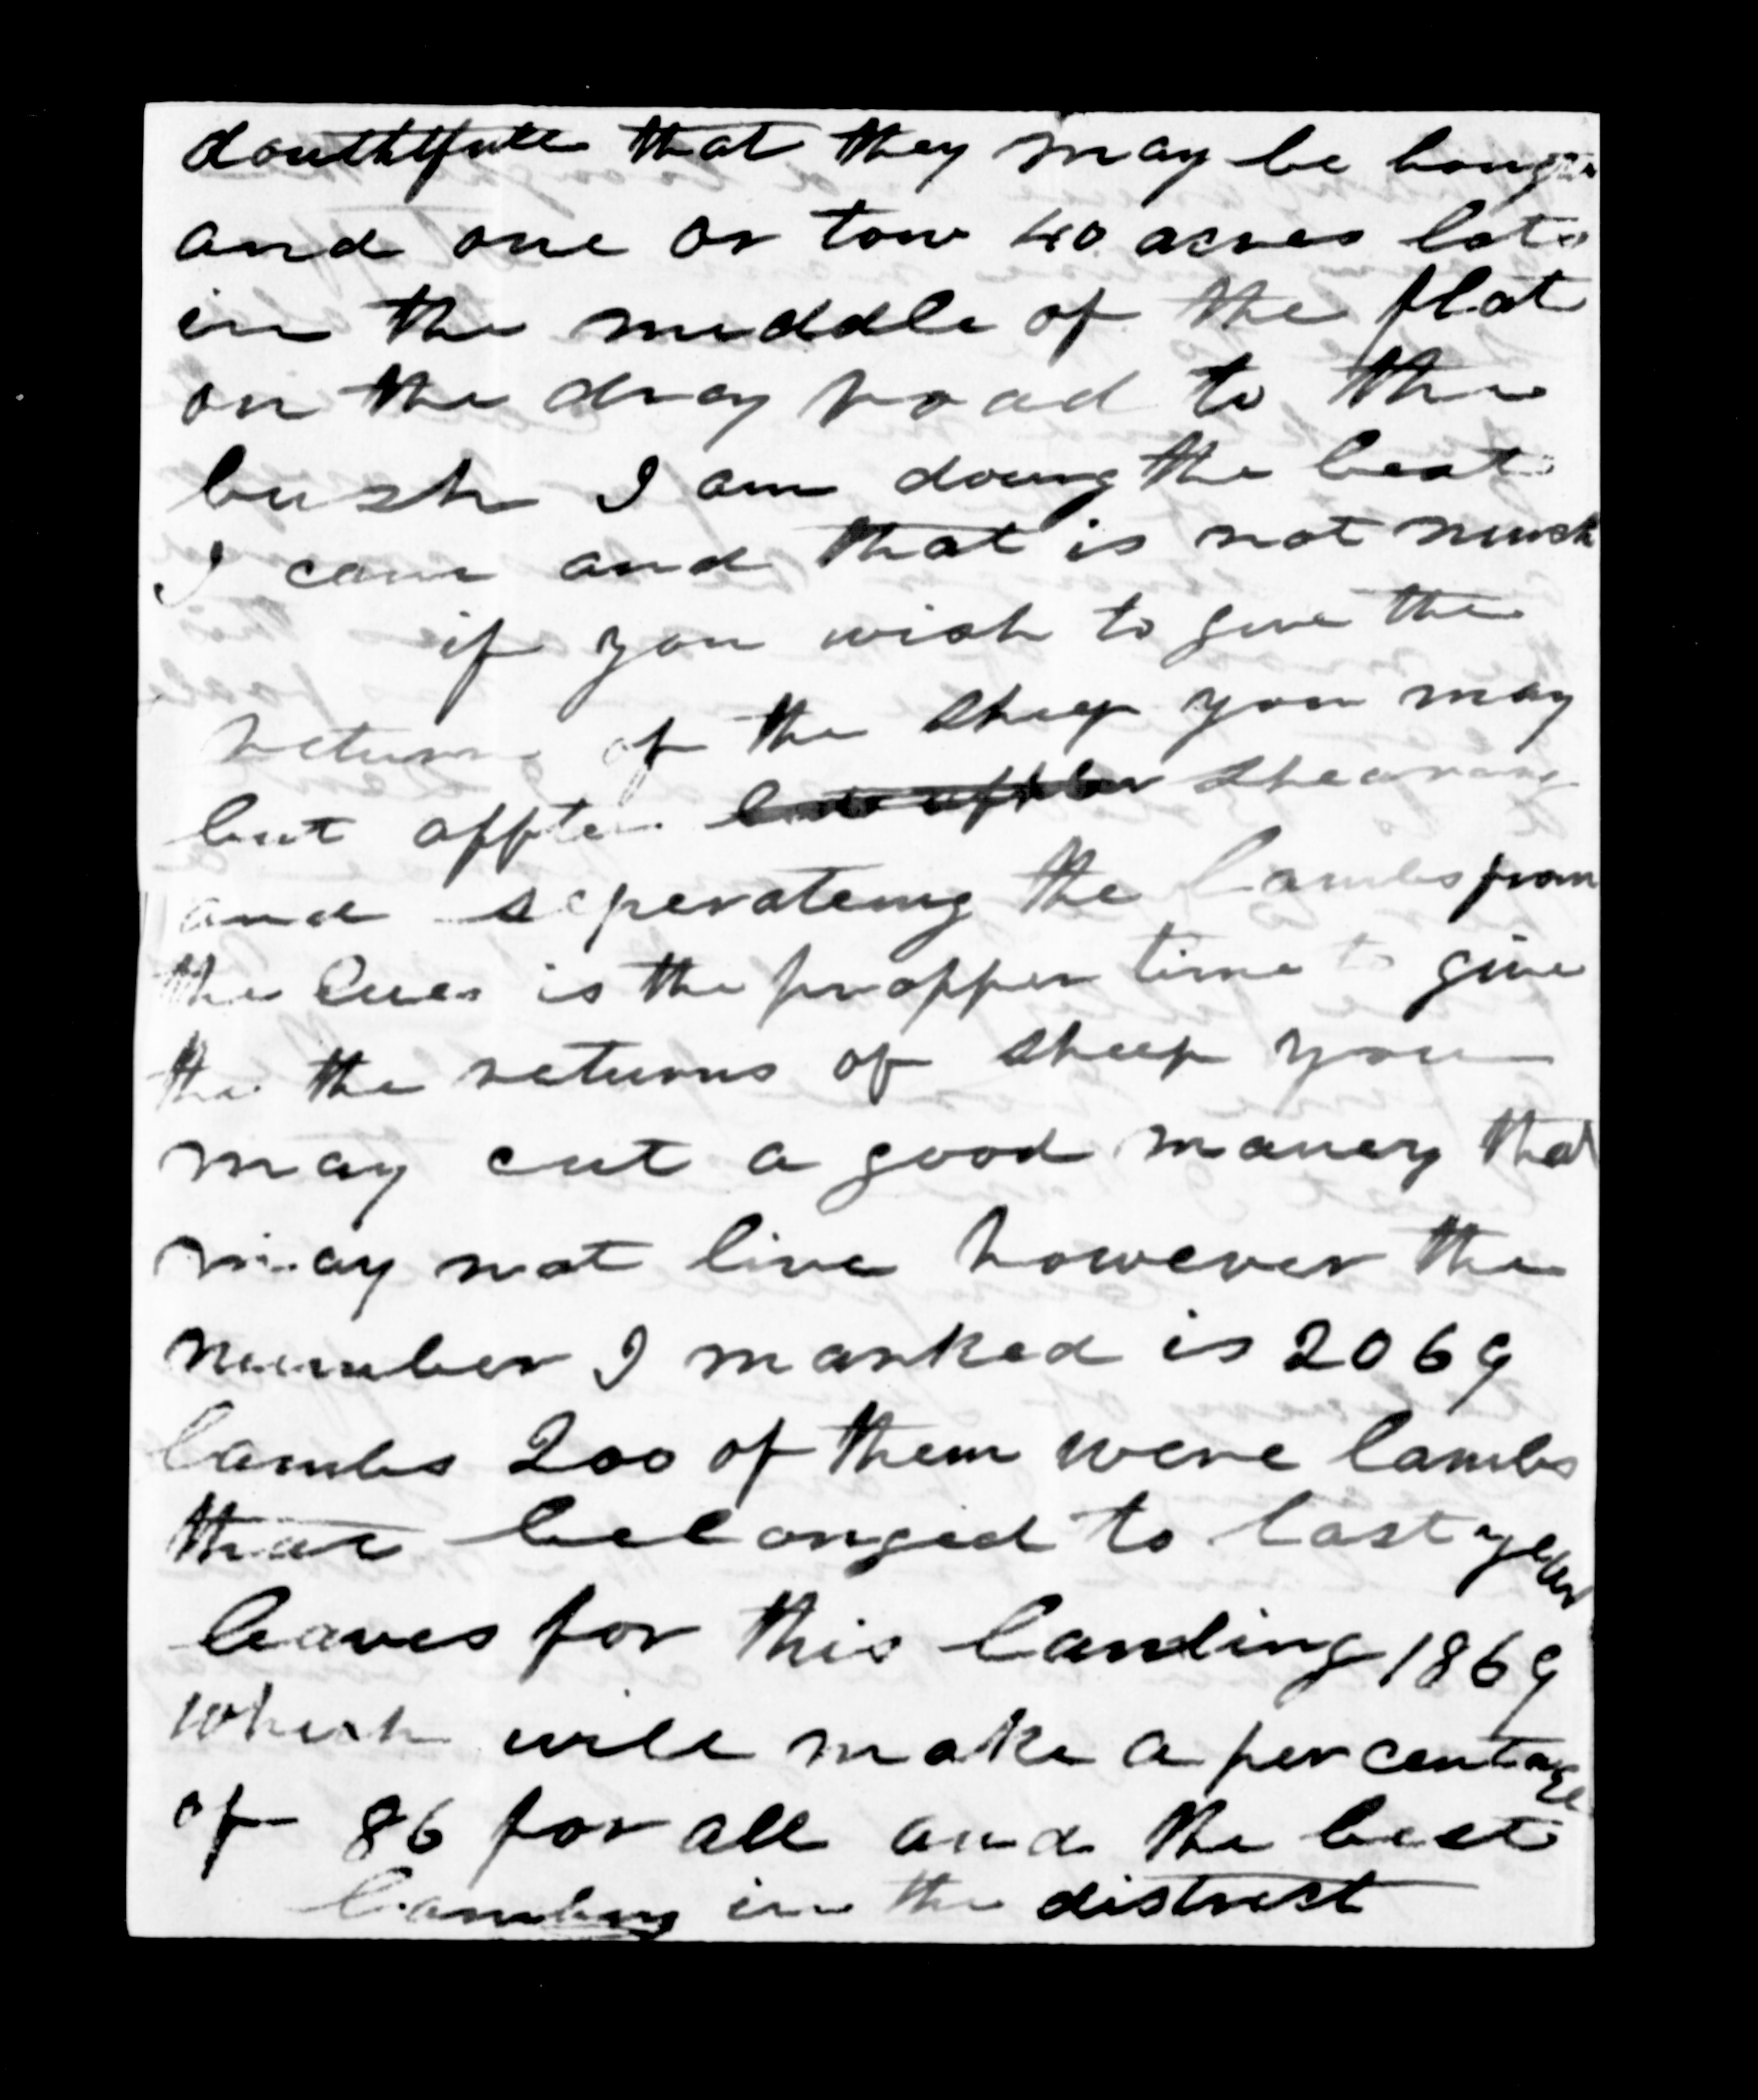 douthtfull that they may be
and one or tow 40 acres lots
in the muddle of the flat
on the dray road to the
bush I am doung the best
I cane and that is not mush
if you wish to give the
returns of the sheep you may
but affter shearing
and seperateing the lambs from
the Eues is the propper time to give
the the returns of sheep you
may cut a good maney that
may not live however the
number I marked is 2069
lambs 200 of them were lambs
that belonged to last year
leaves for this lambing 1869
which will make a per centage
of 86 for all and the best
lambing in the distrest